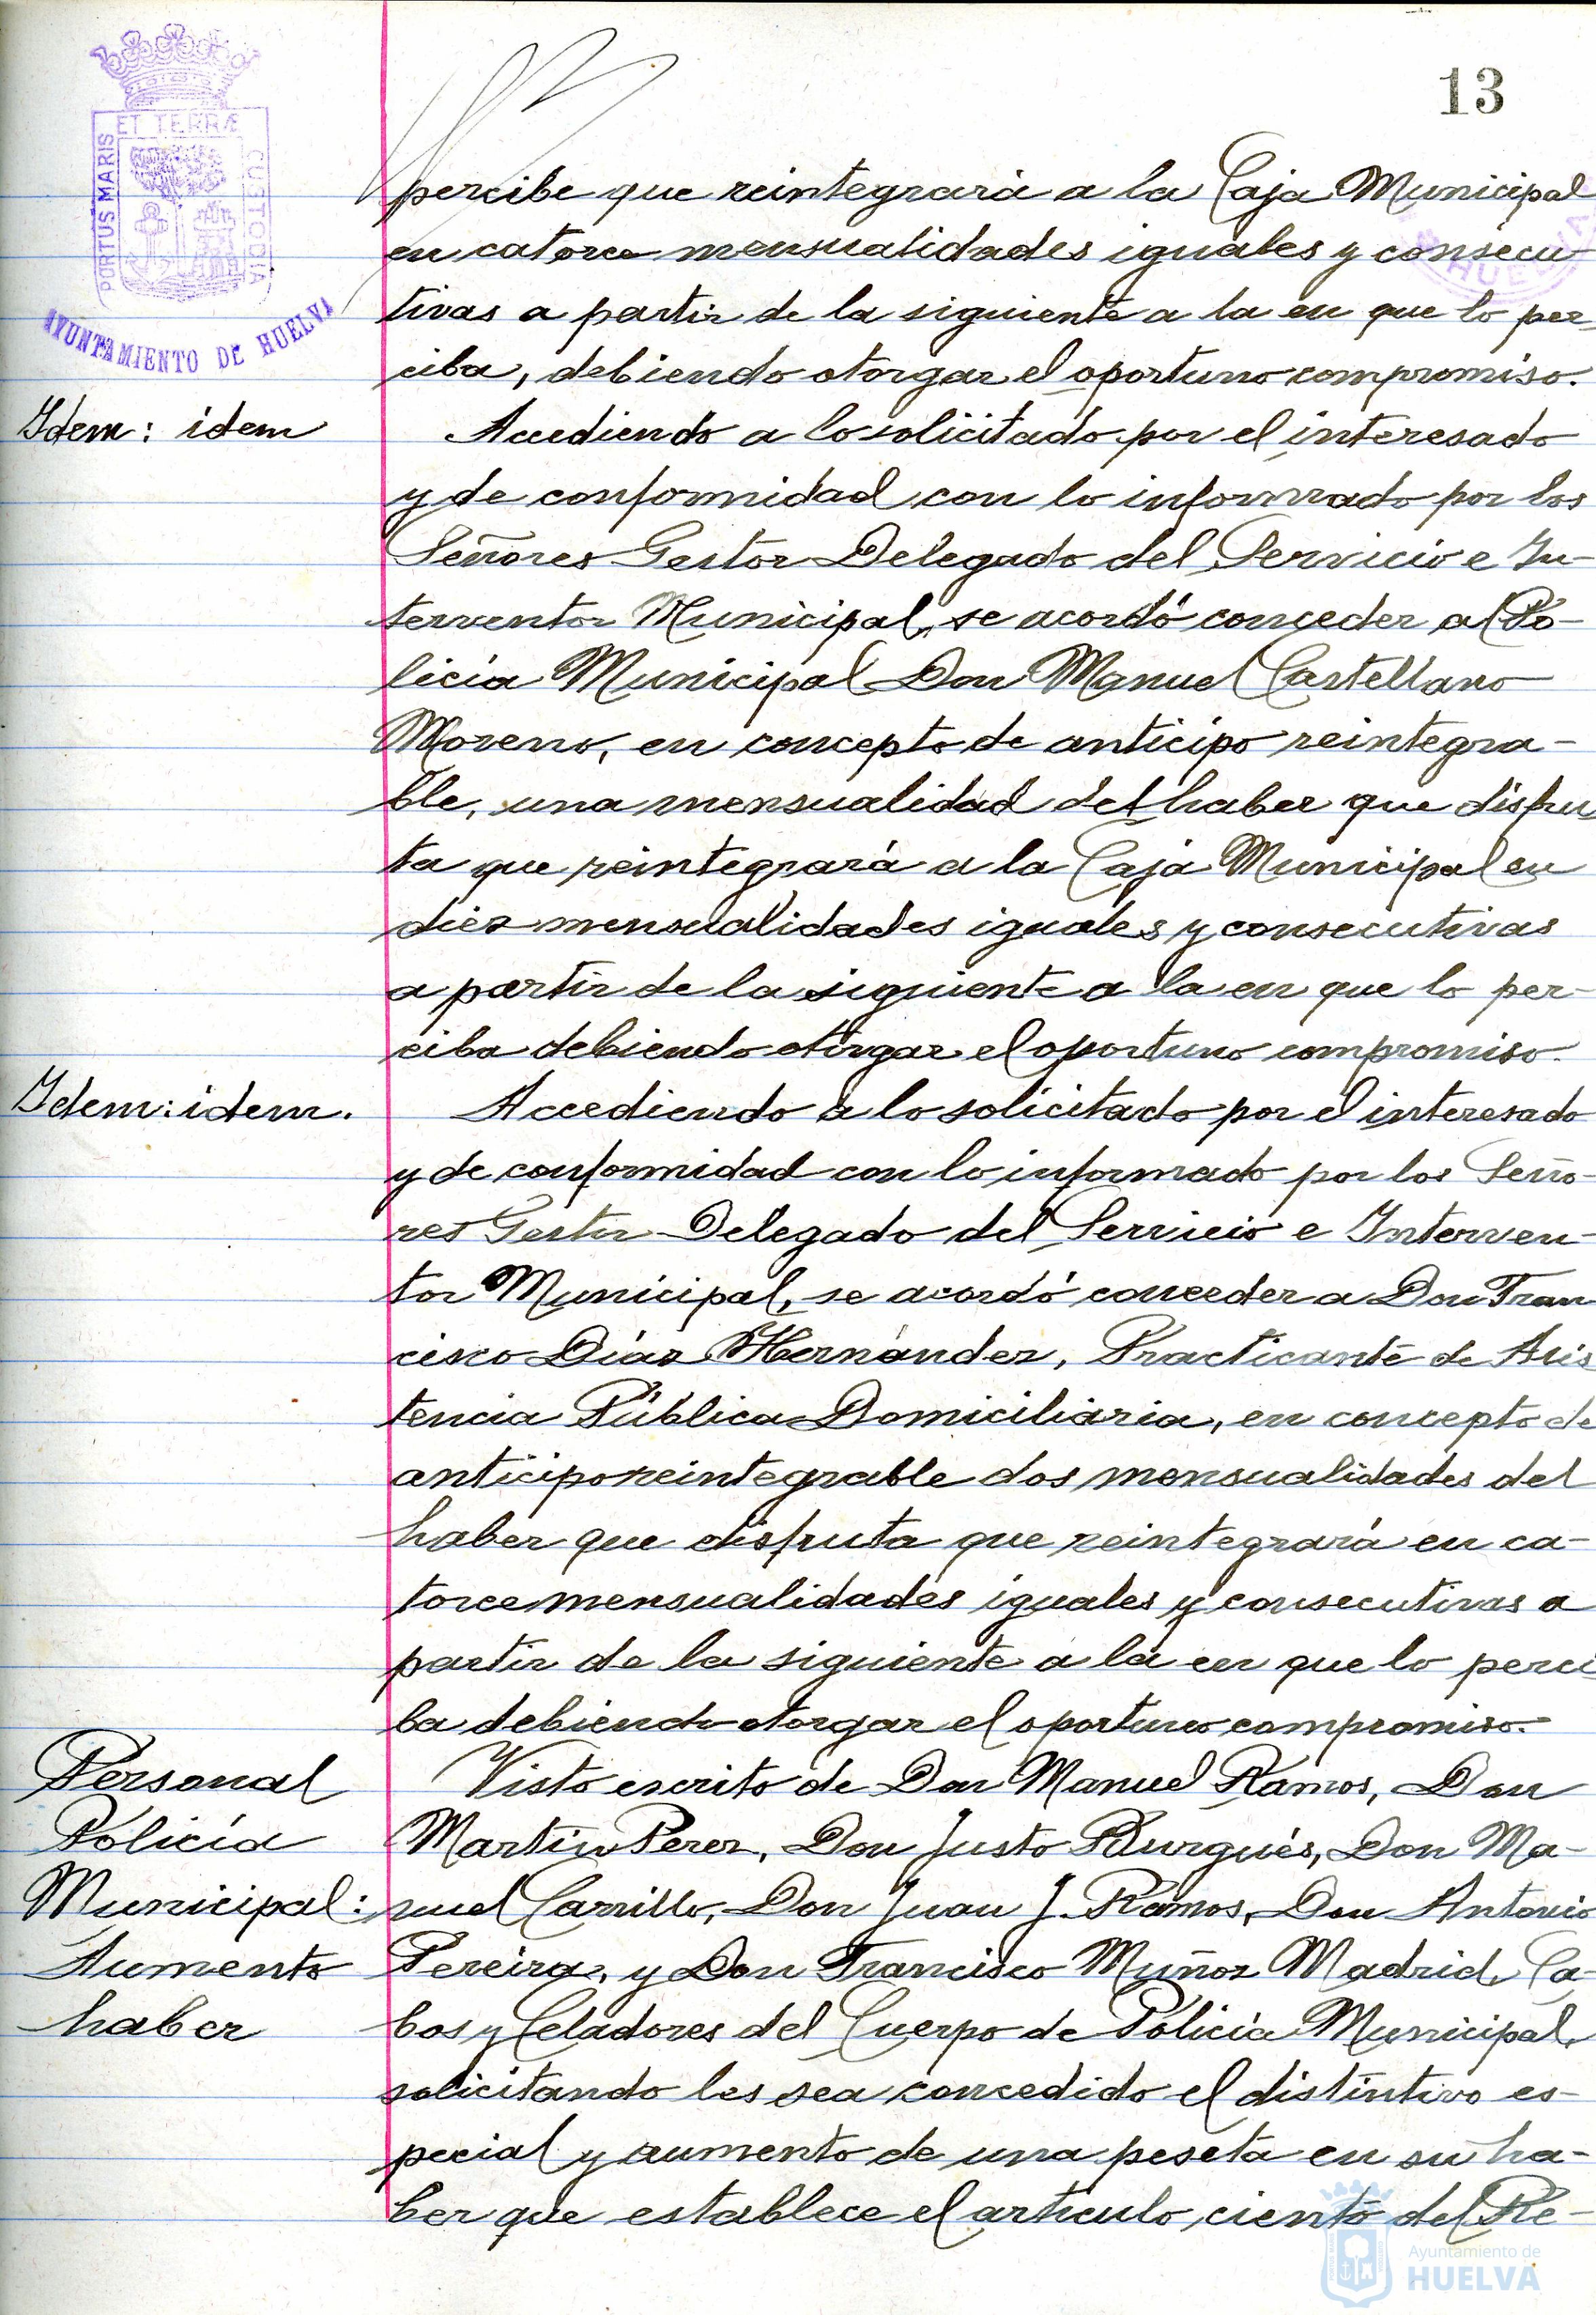 13
ET TERRÆ
PORTUS MARIS
CUSTODIA
AYUNTAMIENTO DE HUELVA
HUELVA
percibe que reintegrará a la Caja Municipal
en catorce mensualidades iguales y consecu-
tivas a partir de la siguiente a la en que lo per-
ciba, debiendo otorgar el oportuno compromiso.
Idem: idem
Accediendo a lo solicitado por el interesado
y de conformidad con lo informado por los
Señores Gestor Delegado del Servicio e In-
terventor Municipal, se acordó conceder al Po-
licia Municipal Don Manuel Castellano
Moreno, en concepto de anticipo reintegra-
ble, una mensualidad del haber que disfru
ta que reintegrará a la Caja Municipal en
diez mensualidades iguales y consecutivas
a partir de la siguiente a la en que lo per-
ciba debiendo otorgar el oportuno compromiso.
Idem: idem.
Accediendo a lo solicitado por el interesado
y de conformidad con lo informado por los Seño-
res Gestor Delegado del Servicio e Interven-
tor Municipal, se acordó conceder a Don Fran
cisco Díaz Hernández, Practicante de Asis
tencia Pública Domiciliaria, en concepto de
anticipo reintegrable dos mensualidades del
haber que disfruta que reintegrará en ca-
torce mensualidades iguales y consecutivas a
partir de la siguiente a la en que lo perci
ba debiendo otorgar el oportuno compromiso.
Personal
Policía
Municipal:
Aumento
haber
Visto escrito de Don Manuel Ramos, Don
Martin Perez, Don Justo Burgués, Don Ma-
nuel Carrillo, Don Juan J. Ramos, Don Antonio
Pereira, y Don Francisco Muñoz Madrid, Ca-
bos y Celadores del Cuerpo de Policía Municipal,
solicitando les sea concedido el distintivo es-
pecial y aumento de una peseta en su ha-
ber que establece el artículo ciento del Re-
Ayuntamiento de
HUELVA